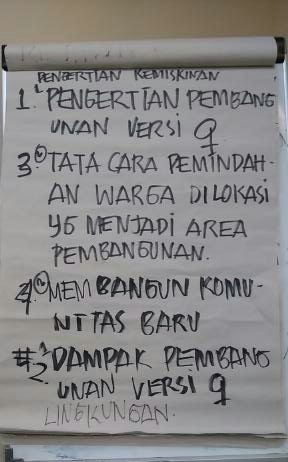 PENGERTIAN KEMISKINAN
1. PENGERTIAN PEMBANG
UNAN VERSI 9
3. TATA CARA PEMINDAH-
AN WARGA DILOKASI
YG MENJADI AREA
PEMBANGUNAN.
4. MEMBANGUN KOMU-
NITAS BARU
2. DAMPAK PEMBANG
UNAN VERSI 9
LINGKUNGAN.